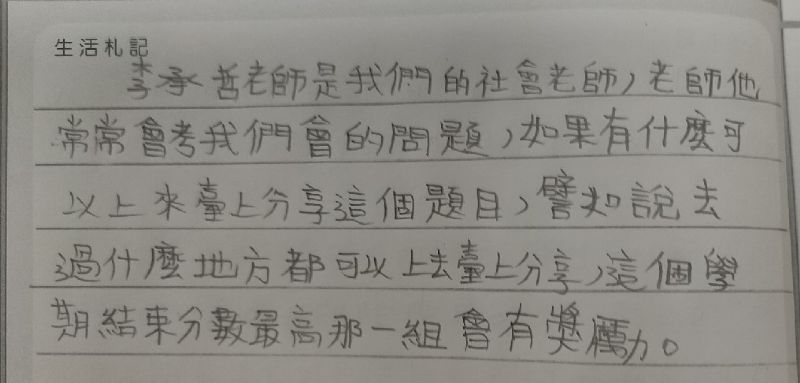 生活札記
李承哲老師是我們的社會老師,老師他
常常會考我們會的問題,如果有什麼可
以上來臺上分享這個題目,譬如說去
過什麼地方都可以上去臺上分享,這個學
期結束分數最高那一組會有獎勵。